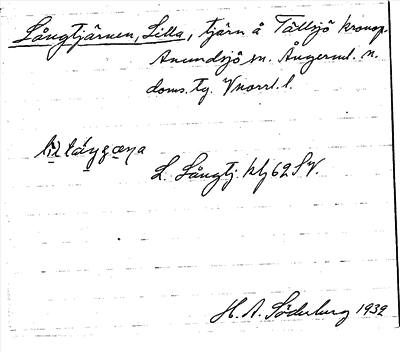 Långtjärnen, Lilla, tjärn å Tällsjö kronop.
Anundsjö sn. Ångerml. n.
doms. tg. Vnorrl. l.
L. Långtj. klj 62 SV.
H. A. Söderberg 1932